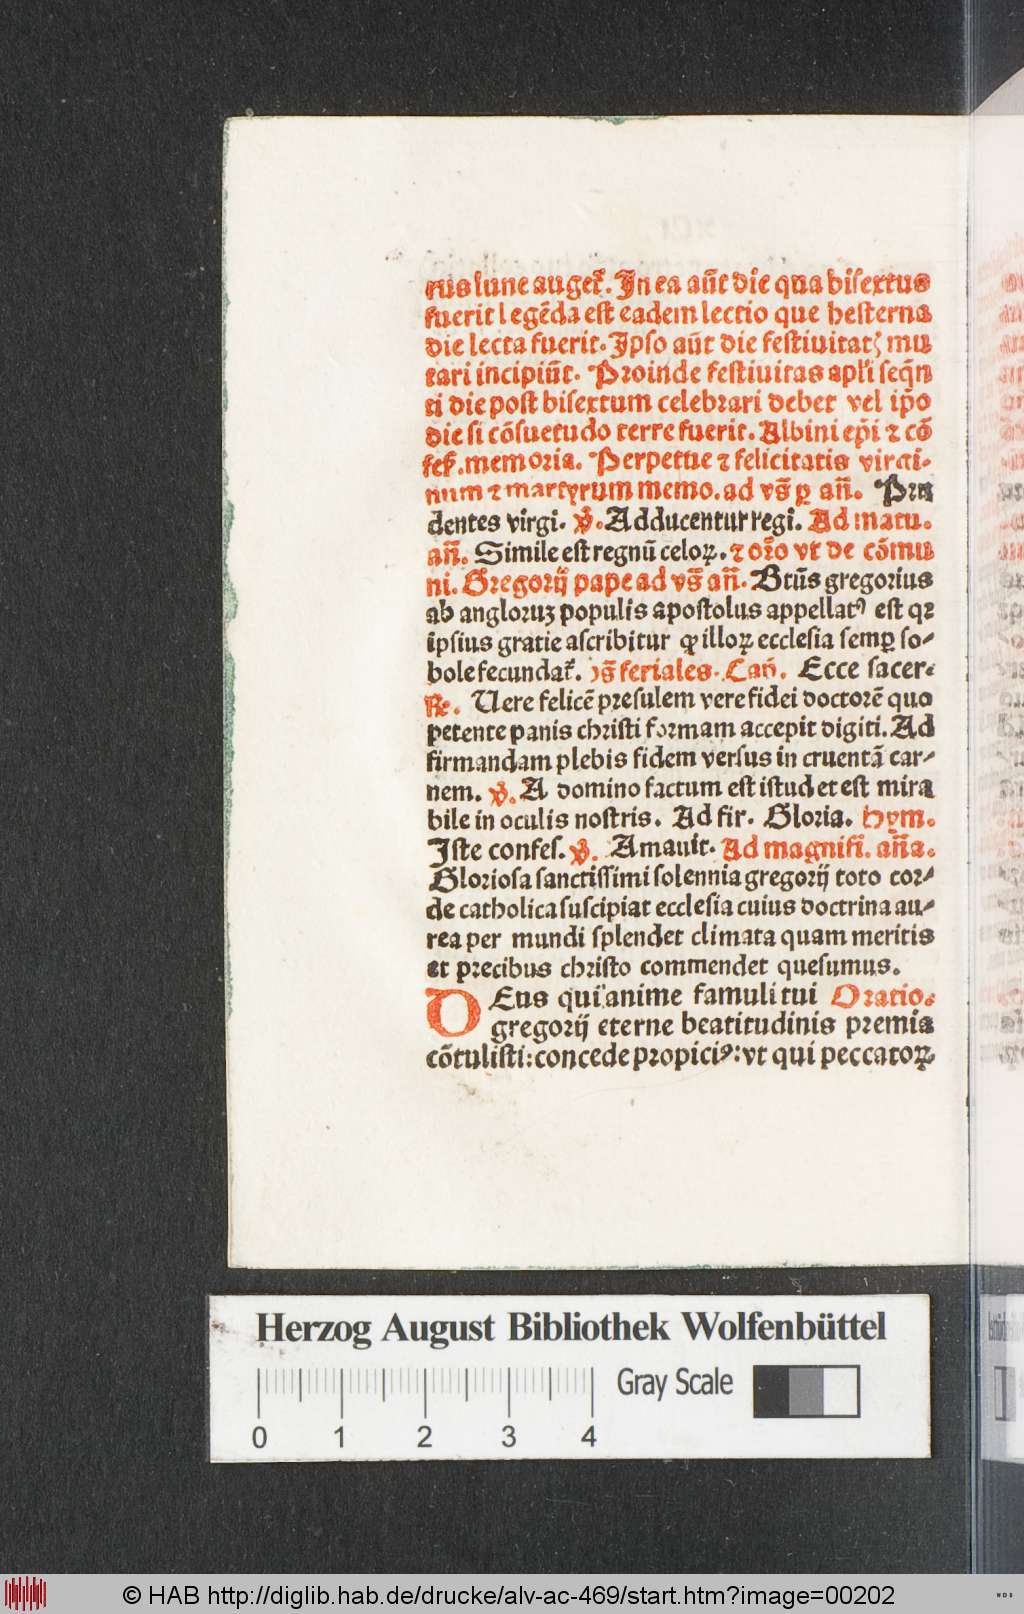 rus lune auget᷑. In ea aūt die qua bisextus
fuerit legēda est eadem lectio que hesterna
die lecta fuerit. Ipso aūt die festiuitatꝭ mu
tari incipiūt. Proinde festiuitas apl̄i seqn̄
ti die post bisextum celebrari debet vel ip̄o
die si cōsuetudo terre fuerit. Albini ep̄i ⁊ cō
fes̄. memoria. Perpetue ⁊ felicitatis virgi⸗
num ⁊ martyrum memo. ad vs̄ ꝑ an̄. Pru
dentes virgi. ℣. Adducentur regi. Ad matu.
an̄. Simile est regnū celoꝝ. ⁊ or̄o vt de cōmu
ni. Gregorij pape ad vs̄ an̄. Btūs gregorius
ab angloruꝫ populis apostolus appellatꝰ est qꝛ
ipsius gratie ascribitur ꝙ illoꝝ ecclesia semꝑ so⸗
bole fecundat᷑. vs̄ feriales. Cap̄. Ecce sacer⸗
℟. Uere felicē presulem vere fidei doctorē quo
petente panis christi formam accepit digiti. Ad
firmandam plebis fidem versus in cruentā car⸗
nem. ℣. A domino factum est istud et est mira
bile in oculis nostris. Ad fir. Gloria. Hym.
Iste confes. ℣. Amauit. Ad magnifi. an̄a.
Gloriosa sanctissimi solennia gregorij toto cor⸗
de catholica suscipiat ecclesia cuius doctrina au⸗
rea per mundi splendet climata quam meritis
et precibus christo commendet quesumus.
DEus qui anime famuli tui Oratio.
gregorij eterne beatitudinis premia
cōtulisti: concede propiciꝰ: vt qui peccatoꝝ
Herzog August Bibliothek Wolfenbüttel
Gray Scale
0 1 2 3 4
© HAB http://diglib.hab.de/drucke/alv-ac-469/start.htm?image=00202